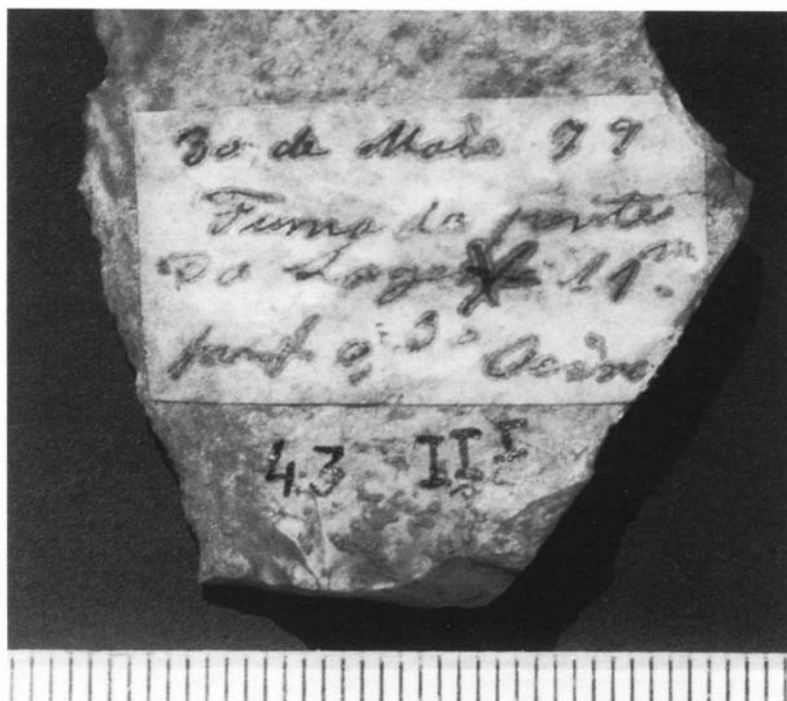 30 de Maio 79
Furna da ponte
Da Lage 11.m
prof 0,30
43 III